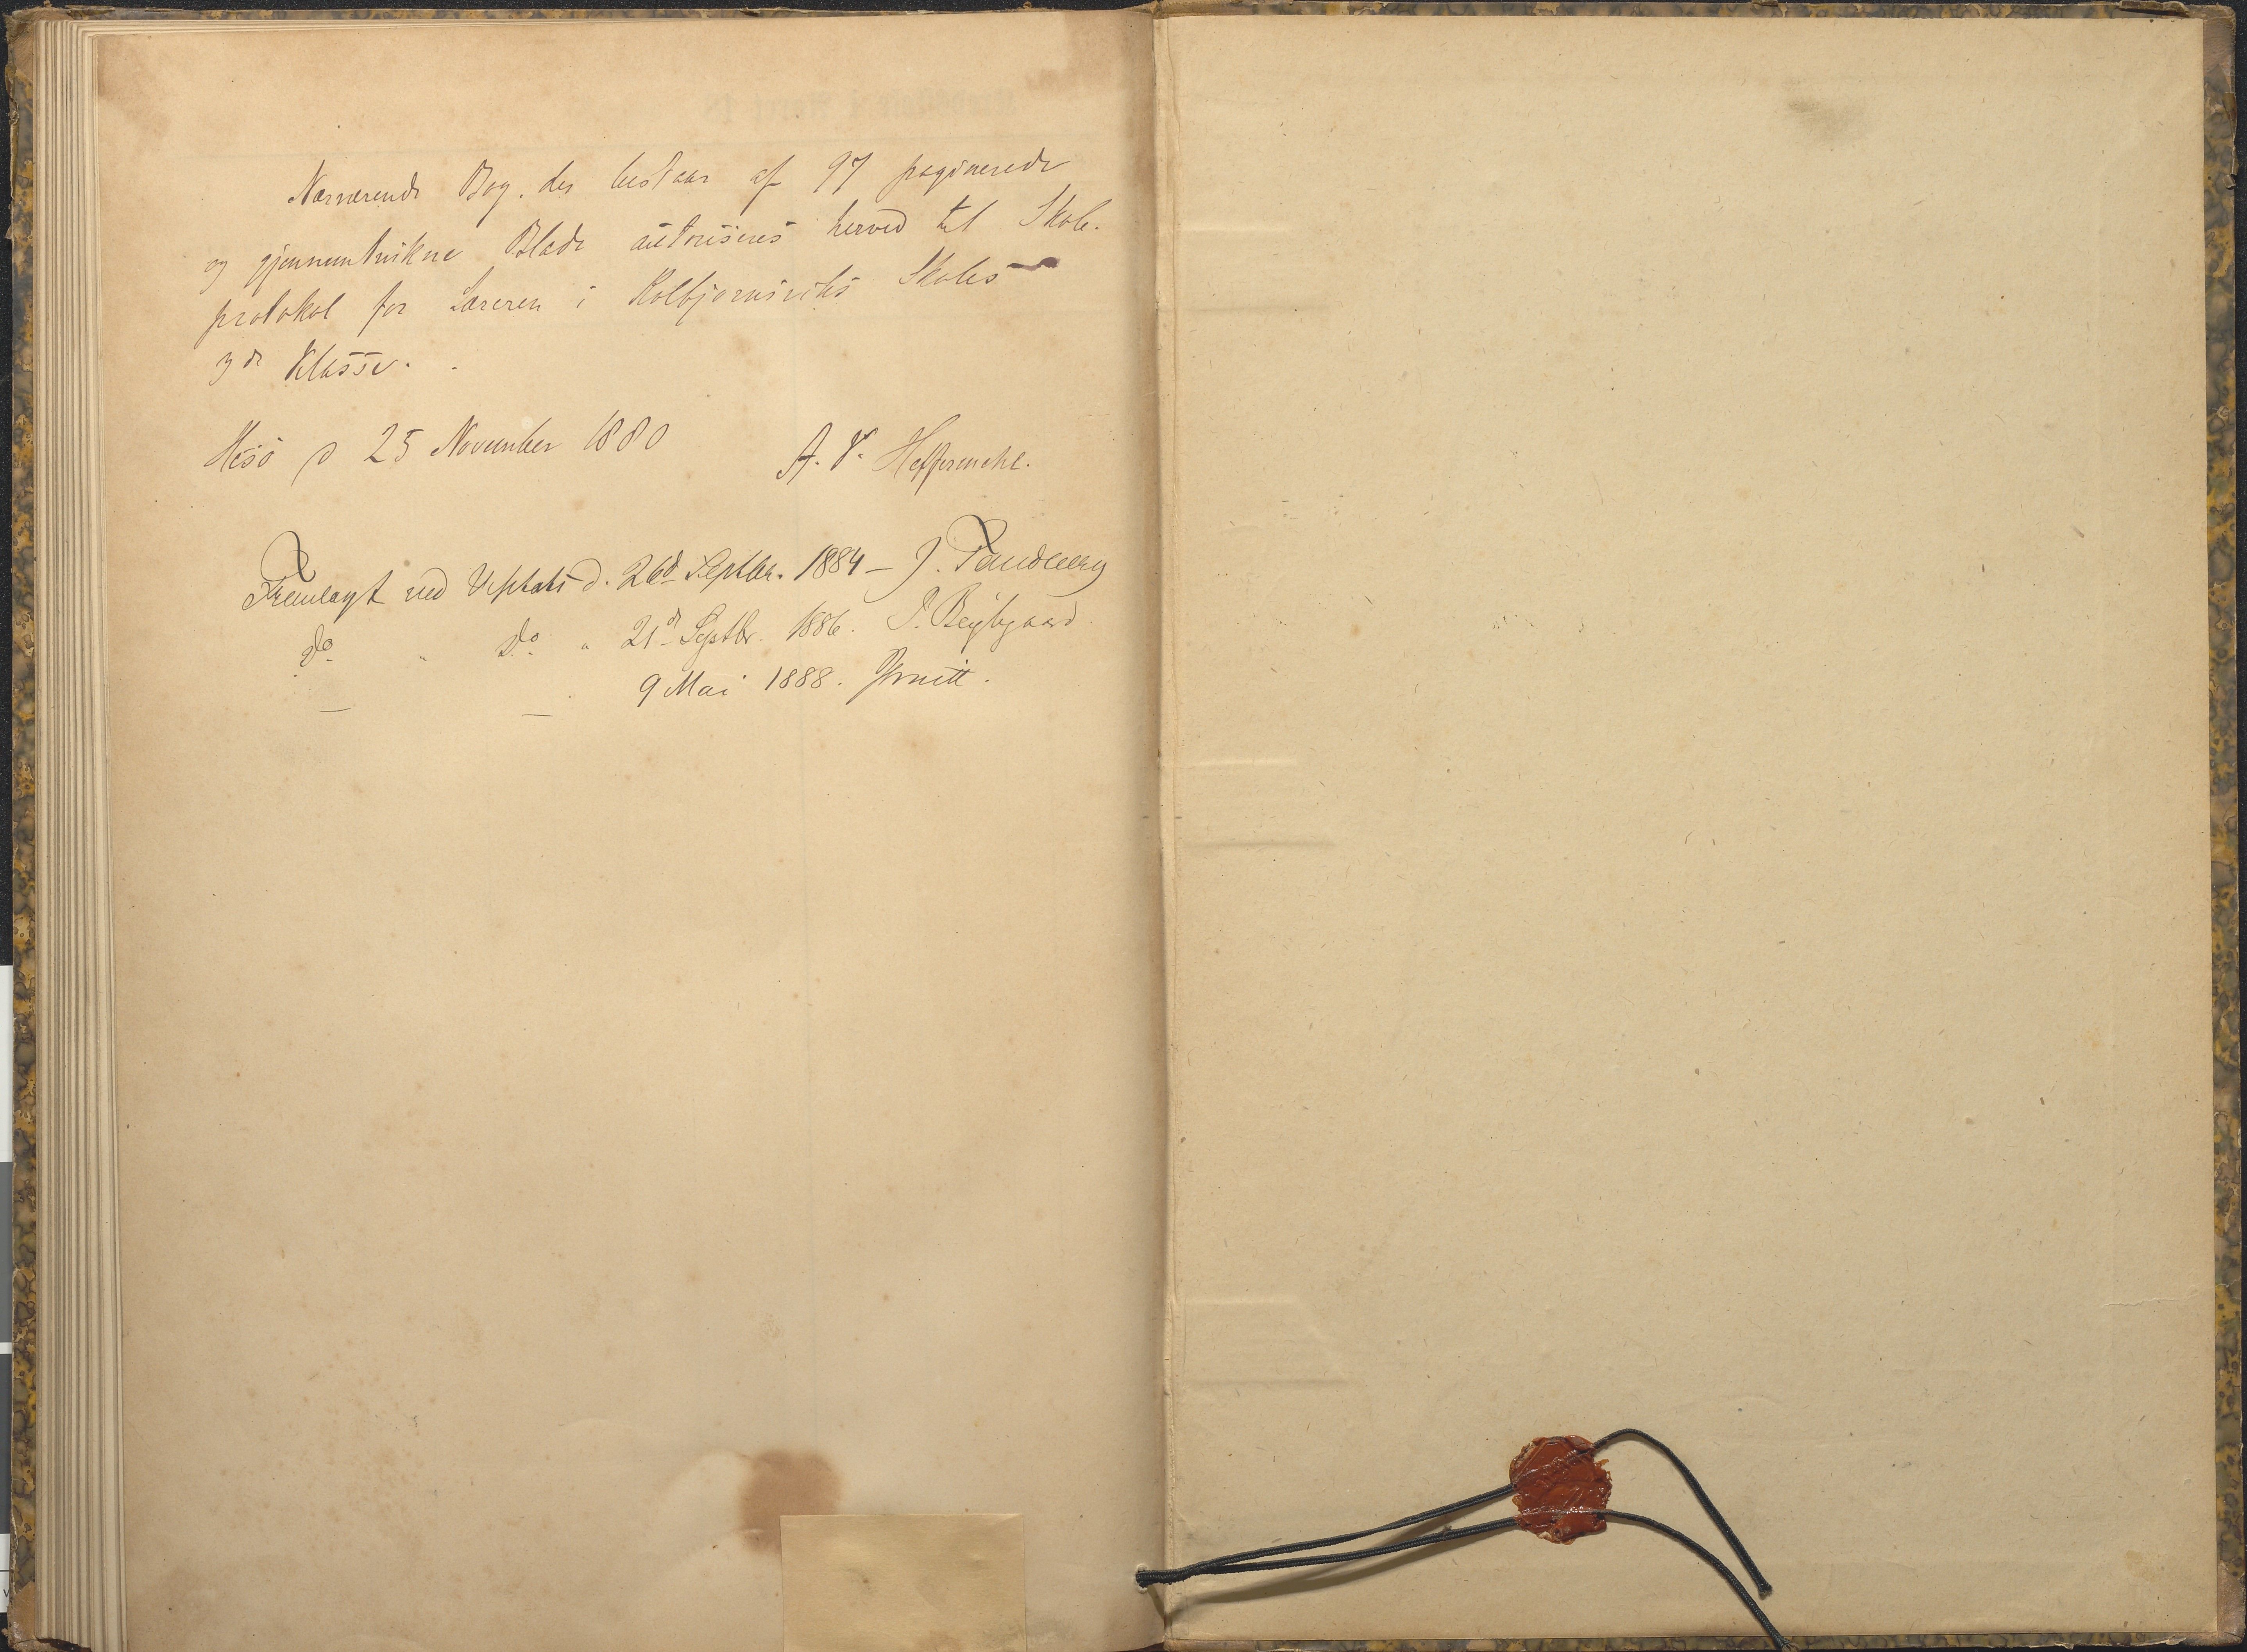 Nærværende Bog, der bestaar af 97 paginerede
og gjennemtrukne Blade autoriseres herved til Skole-
protokol for Læreren i Kolbjørnsviks Skoles
3de Klasse.
Hisø d 25 November 1880 A. V. Heffermehl.
Fremlagt ved Visitats d. 26d Septbr. 1884 – J. Sandberg
do " do " 21d Septbr. 1886.
— — 9 Mai 1888. Smitt.